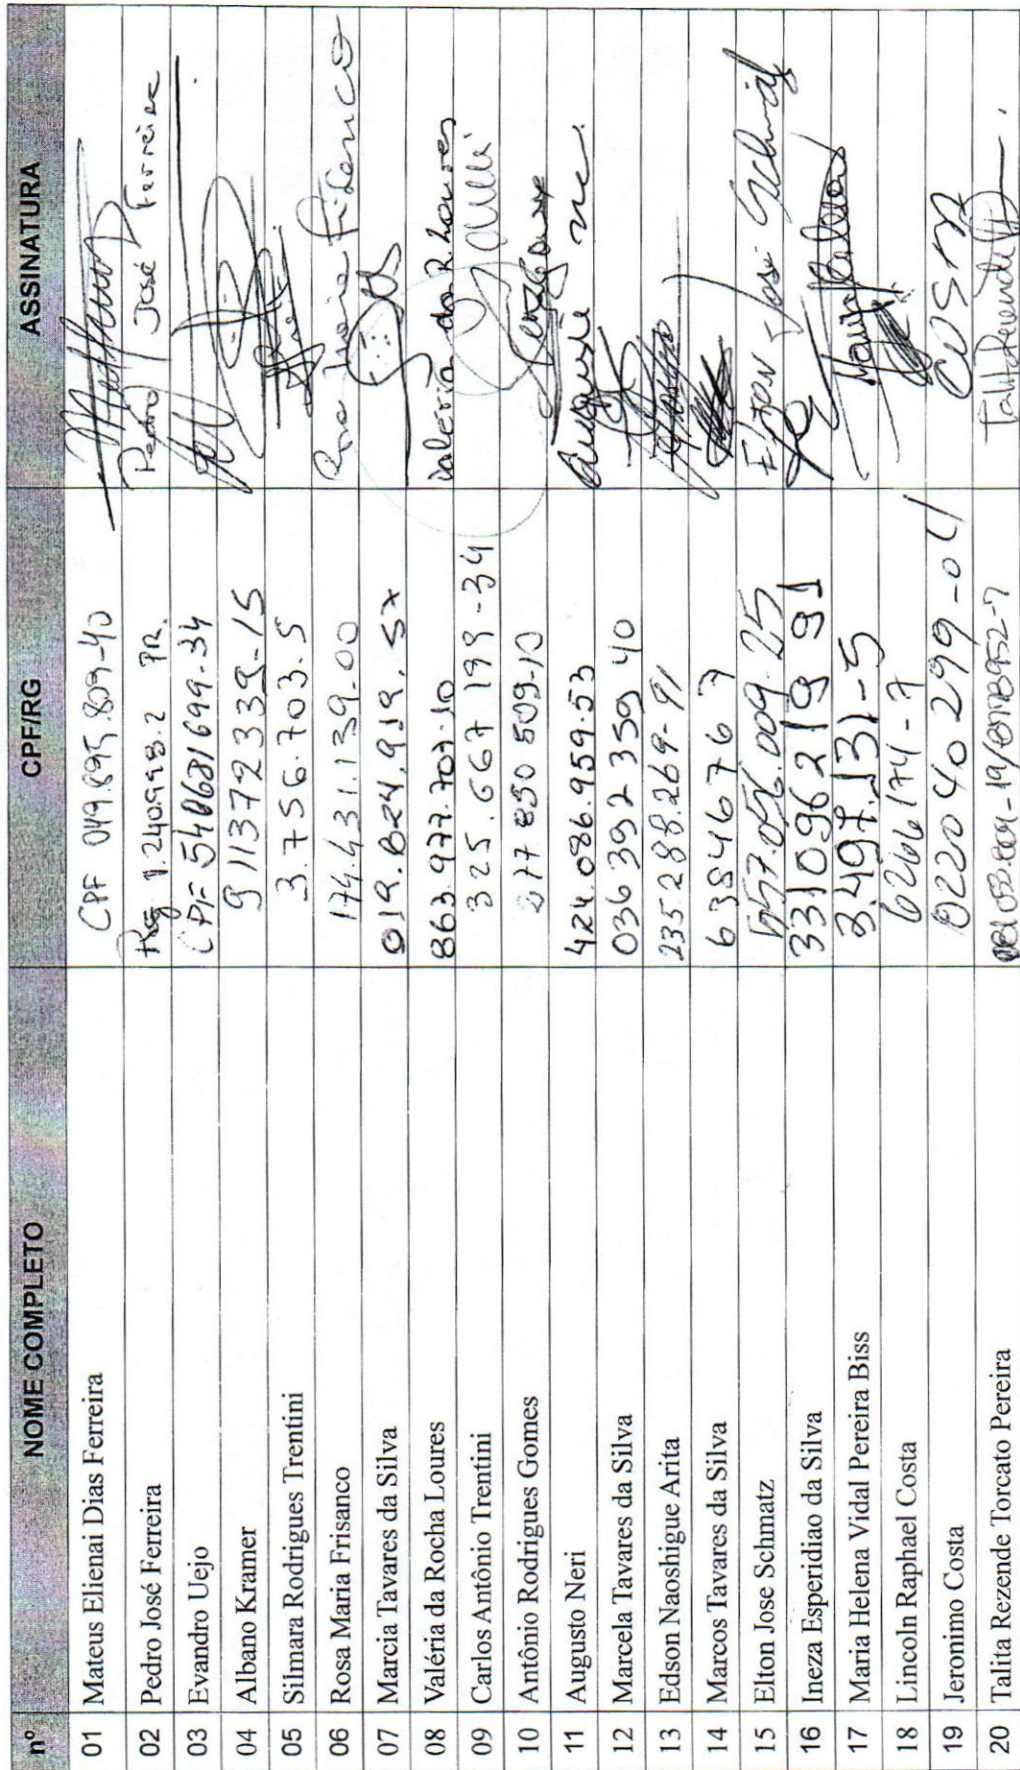 nº NOME COMPLETO CPF/RG ASSINATURA
01 Mateus Elienai Dias Ferreira CPF 049.895.809-40
02 Pedro José Ferreira Reg 1.240.998.2 PR. Pedro José Ferreira
03 Evandro Uejo CPF 540681699-34
04 Albano Kramer 911372339-15
05 Silmara Rodrigues Trentini 3.756.703.5
06 Rosa Maria Frisanco 174.431.139-00 Rosa Maria Frisanco
07 Marcia Tavares da Silva 019.824.919.57
08 Valéria da Rocha Loures 863.977.707-10 Valéria da R Loures
09 Carlos Antônio Trentini 325.667 199-34
10 Antônio Rodrigues Gomes 277 850 509-10
11 Augusto Neri 424.086.959-53 Augusto
12 Marcela Tavares da Silva 036 392 359 40
13 Edson Naoshigue Arita 235.288.269-91
14 Marcos Tavares da Silva 63846767
15 Elton Jose Schmatz 557.056.009-25 Elton José
16 Ineza Esperidiao da Silva 331096219 91
17 Maria Helena Vidal Pereira Biss 3.497.131-5
18 Lincoln Raphael Costa 6266174-7
19 Jeronimo Costa 022040299-04
20 Talita Rezende Torcato Pereira